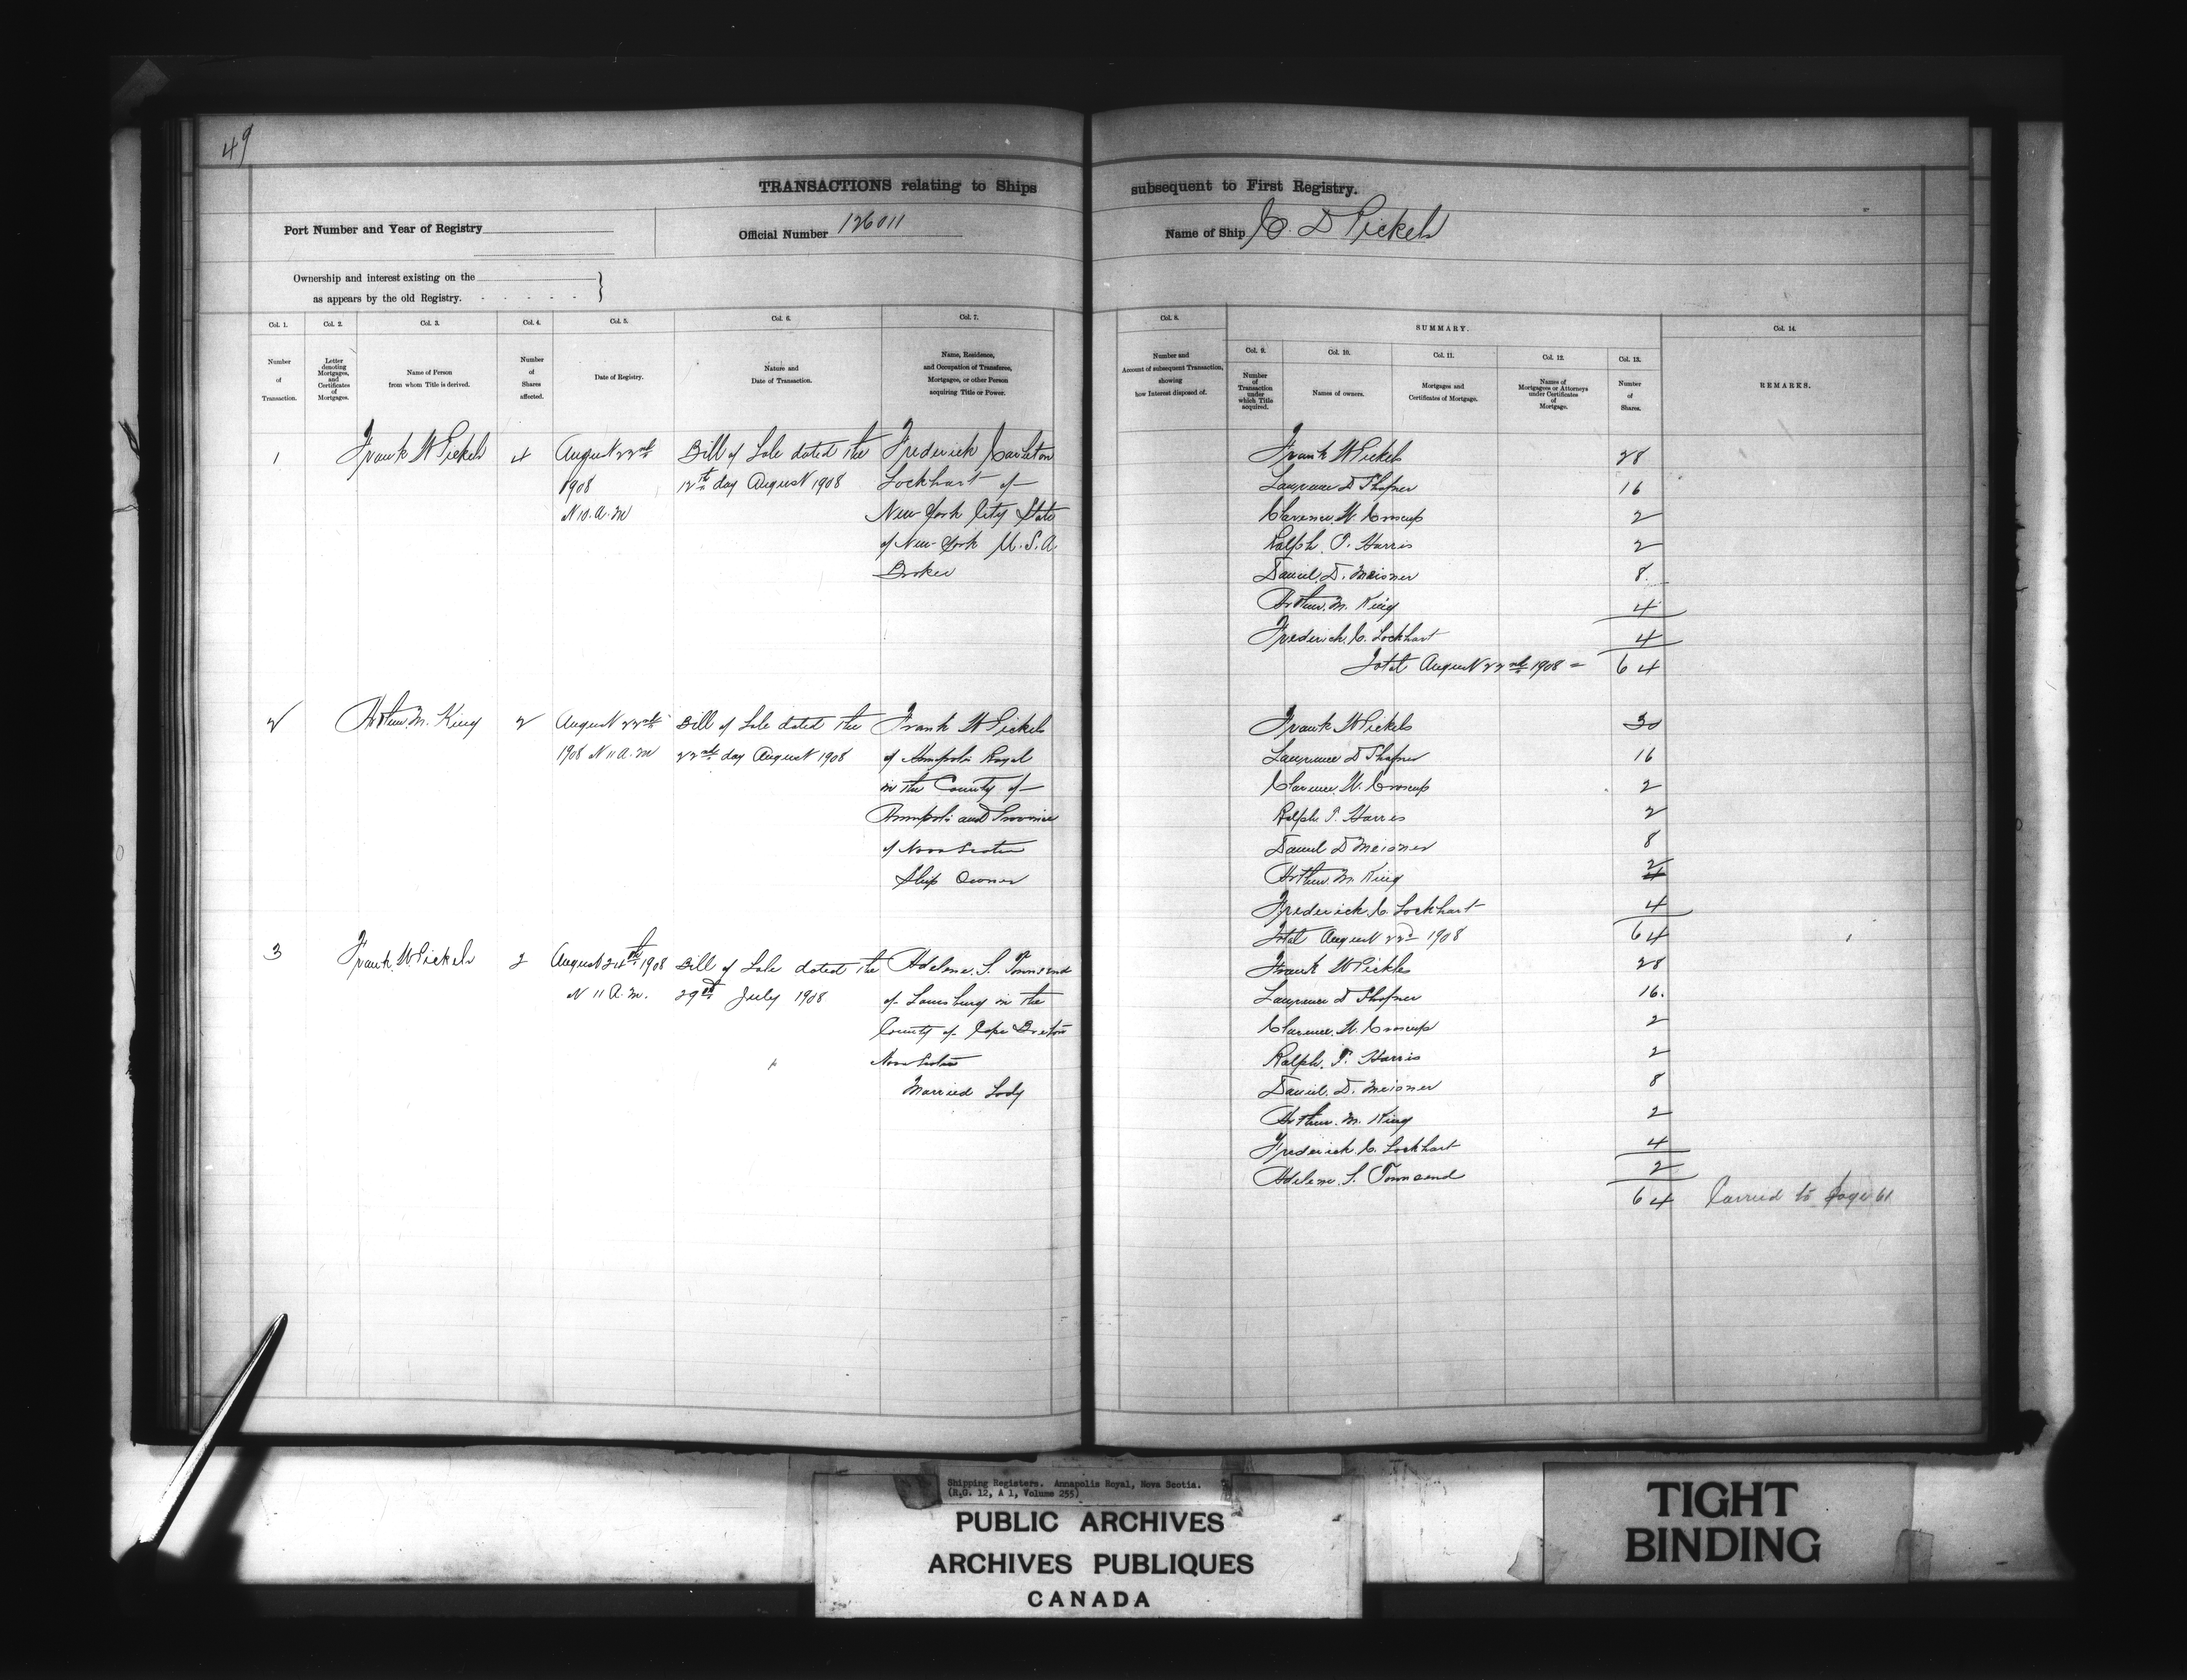 49
TRANSACTIONS relating to Ships subsequent to First Registry.
Port Number and Year of Registry
Official Number 126011
Name of Ship C. D Pickels
Ownership and interest existing on the
as appears by the old Registry. - - - - - }
Col. 1. Col. 2. Col. 3. Col. 4. Col. 5. Col. 6. Col. 7. Col. 8. SUMMARY. Col. 14.
Col. 9. Col. 10. Col. 11. Col. 12. Col. 13.
Number
of
Transaction.
Letter
denoting
Mortgages,
and
Certificates
of
Mortgages.
Name of Person
from whom Title is derived.
Number
of
Shares
affected.
Date of Registry.
Nature and
Date of Transaction.
Name, Residence,
and Occupation of Transferee,
Mortgagee, or other Person
acquiring Title or Power.
Number and
Account of subsequent Transaction,
showing
how Interest disposed of.
Number
of
Transaction
under
which Title
acquired.
Names of owners.
Mortgages and
Certificates of Mortgage.
Names of
Mortgagees or Attorneys
under Certificates
of
Mortgage.
Number
of
Shares.
REMARKS.
1 Frank W Pickels 4 August 22nd Bill of Sale dated the Frederick Carleton
1908 12th day August 1908 Lockhart of
10. A. M New York City State
of New York U. S. A.
Broker
Frank W Pickels 28
Laurence D Shafner 16
Clarence. W. Croscup 2
Ralph. P. Harris 2
Daniel. D. Meisner 8.
Arthur. M. King 4
Frederick. C. Lockhart 4
Total August 22nd 1908 = 64
2 Arthur. M. King 2 August 22nd Bill of Sale dated the Frank W Pickels
1908 11 A. M 22nd day August 1908 of Annapolis Royal
in the County of
Annapolis and Province
of Nova Scotia
Ship Owner
Frank W Pickels 30
Laurence D Shafner 16
Clarence. W. Croscup 2
Ralph. P. Harris 2
Daniel D Meisner 8
Arthur. M. King 2
Frederick. C. Lockhart 4
Total August 22nd 1908 64
3 Frank. W Pickels 2 August 24th 1908 Bill of Sale dated the Adelene. S. Townsend
11 A. M. 29th July 1908 of Louisburg in the
County of Cape Breton
Nova Scotia
Married Lady
Frank W Pickles 28
Laurence D Shafner 16.
Clarence. W. Croscup 2
Ralph. P. Harris 2
Daniel. D. Meisner 8
Arthur. M. King 2
Frederick. C. Lockhart 4
Adelene. S. Townsend 2
64 Carried to page 61
Shipping Registers. Annapolis Royal, Nova Scotia.
(R.G. 12, A 1, Volume 255)
PUBLIC ARCHIVES
ARCHIVES PUBLIQUES
CANADA
TIGHT
BINDING